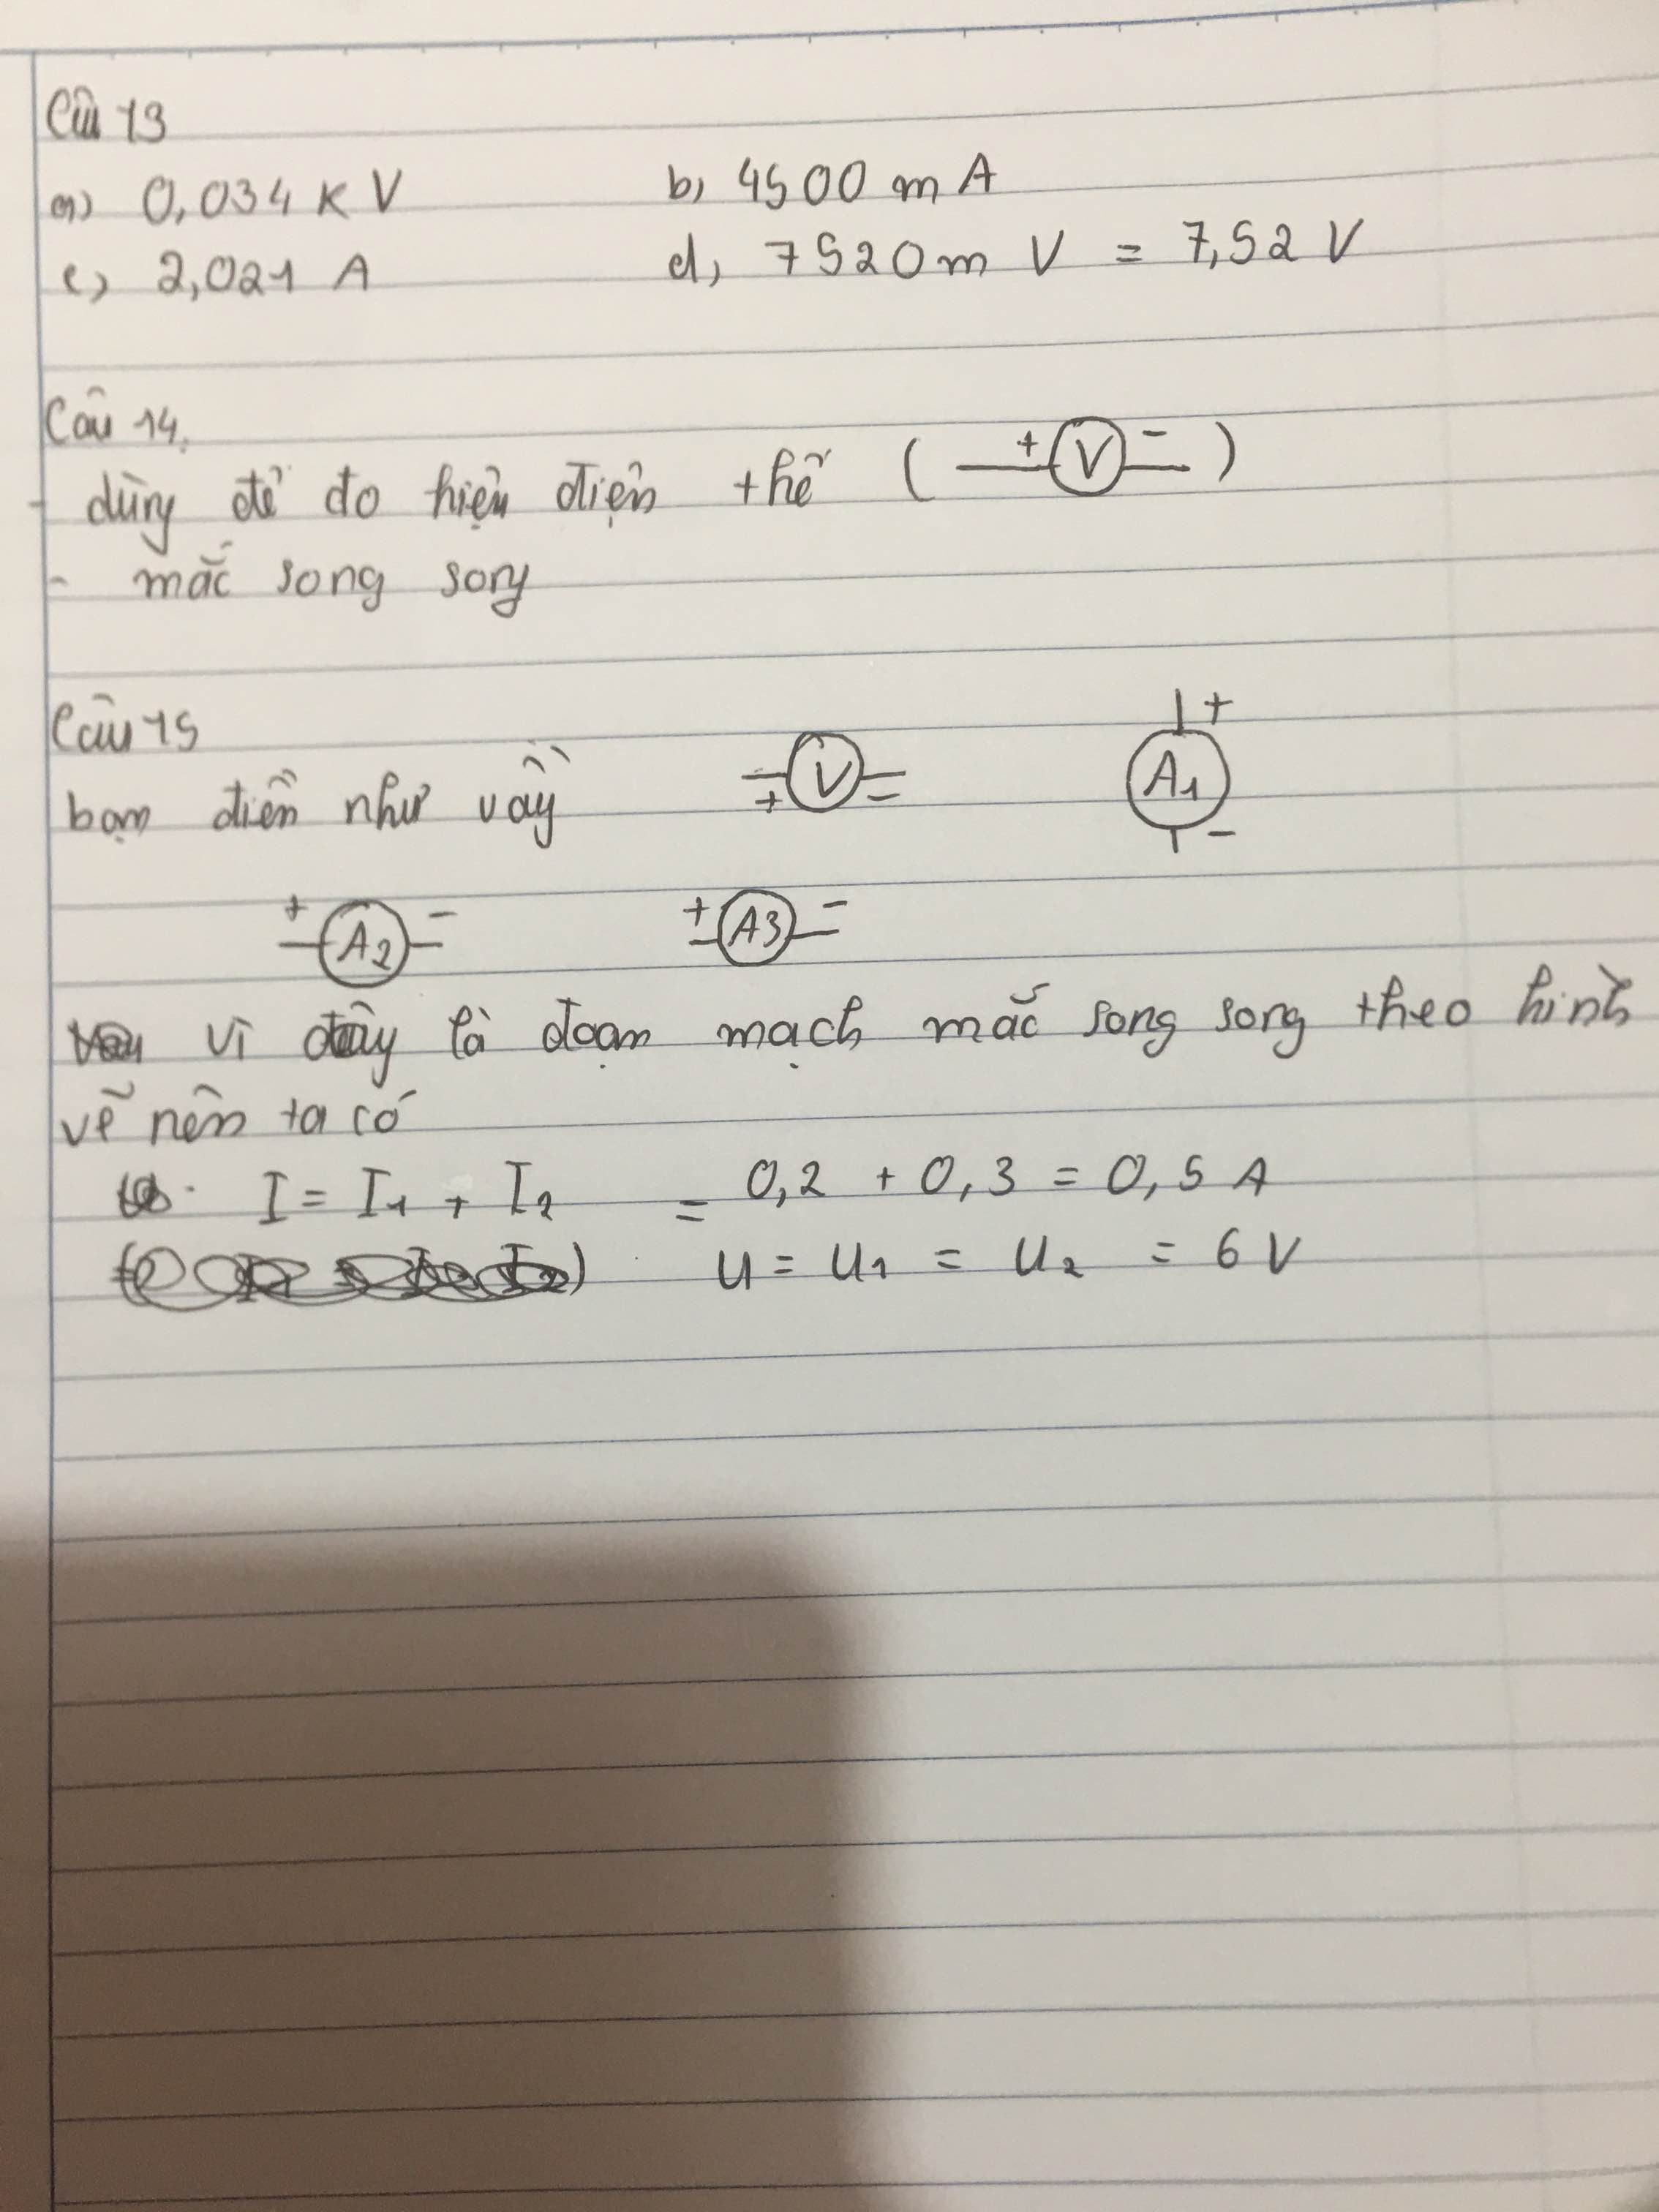 Câu 13
a) 0,034 KV b, 4500 mA
c) 2,021 A d, 7520m V = 7,52 V
Câu 14.
- dùng để đo hiệu điện thế ( + V - )
- mắc song song
Câu 15
bạn điền như vầy + V - A1 + -
+ A2 - + A3 -
vì đây là đoạn mạch mắc song song theo hình
vẽ nên ta có
I = I1 + I2 = 0,2 + 0,3 = 0,5 A
U = U1 = U2 = 6 V